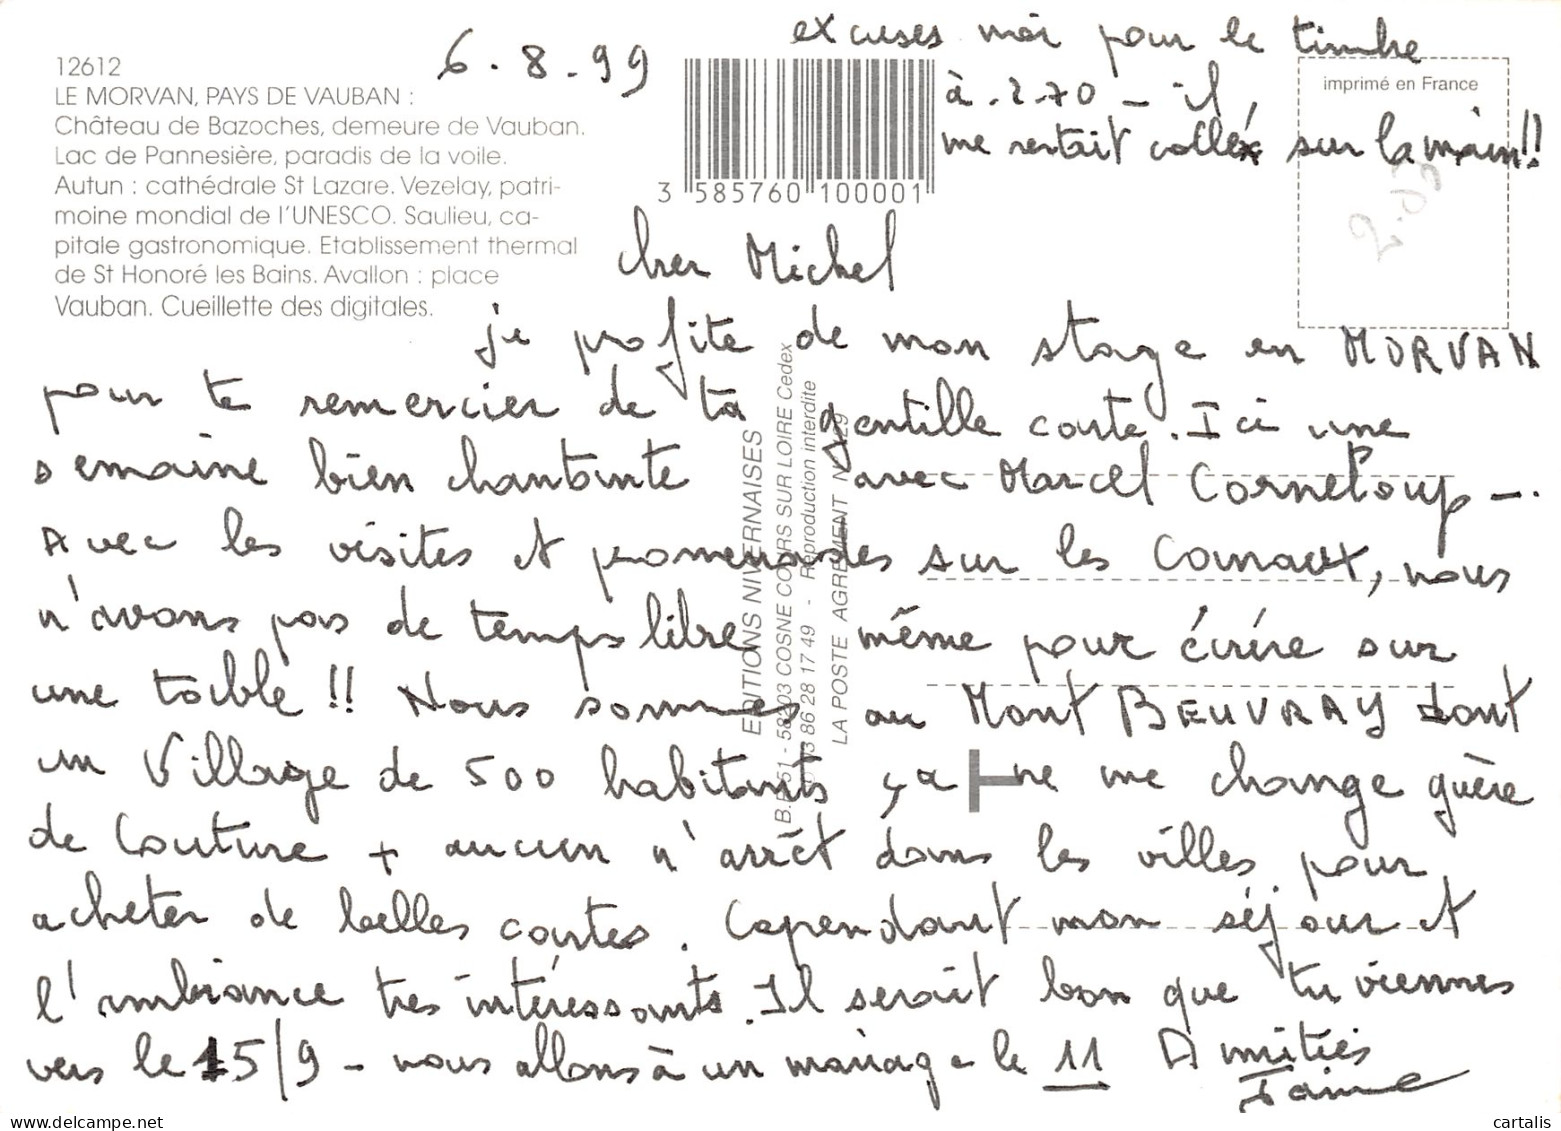 12612
LE MORVAN, PAYS DE VAUBAN :
Château de Bazoches, demeure de Vauban.
Lac de Pannesière, paradis de la voile.
Autun : cathédrale St Lazare. Vezelay, patri-
moine mondial de l'UNESCO. Saulieu, ca-
pitale gastronomique. Etablissement thermal
de St Honoré les Bains. Avallon : place
Vauban. Cueillette des digitales.
6.8.99
3 585760 100001
excuses moi pour le timbre
à 2.70 - il
me restait collé sur la main!!
imprimé en France
cher Michel
je profite de mon stage en MORVAN
pour te remercier de ta gentille carte. Ici une
semaine bien chantante avec Marcel Corneloup -.
Avec les visites et promenades sur les Canaux, nous
n'avons pas de temps libre même pour écrire sur
une table !! Nous sommes au Mont BEUVRAY dont
un Village de 500 habitants ça ne me change guère
de Couture + aucun n'arrêt dans les villes pour
acheter de belles cartes. Cependant mon séjour et
l'ambiance très intéressants. Il serait bon que tu viennes
vers le 15/9 - nous allons à un mariage le 11 Amitiés
EDITIONS NIVERNAISES
COSNE COURS SUR LOIRE Cedex
86 28 17 49 - Reproduction interdite
LA POSTE AGREMENT N°
cartalis